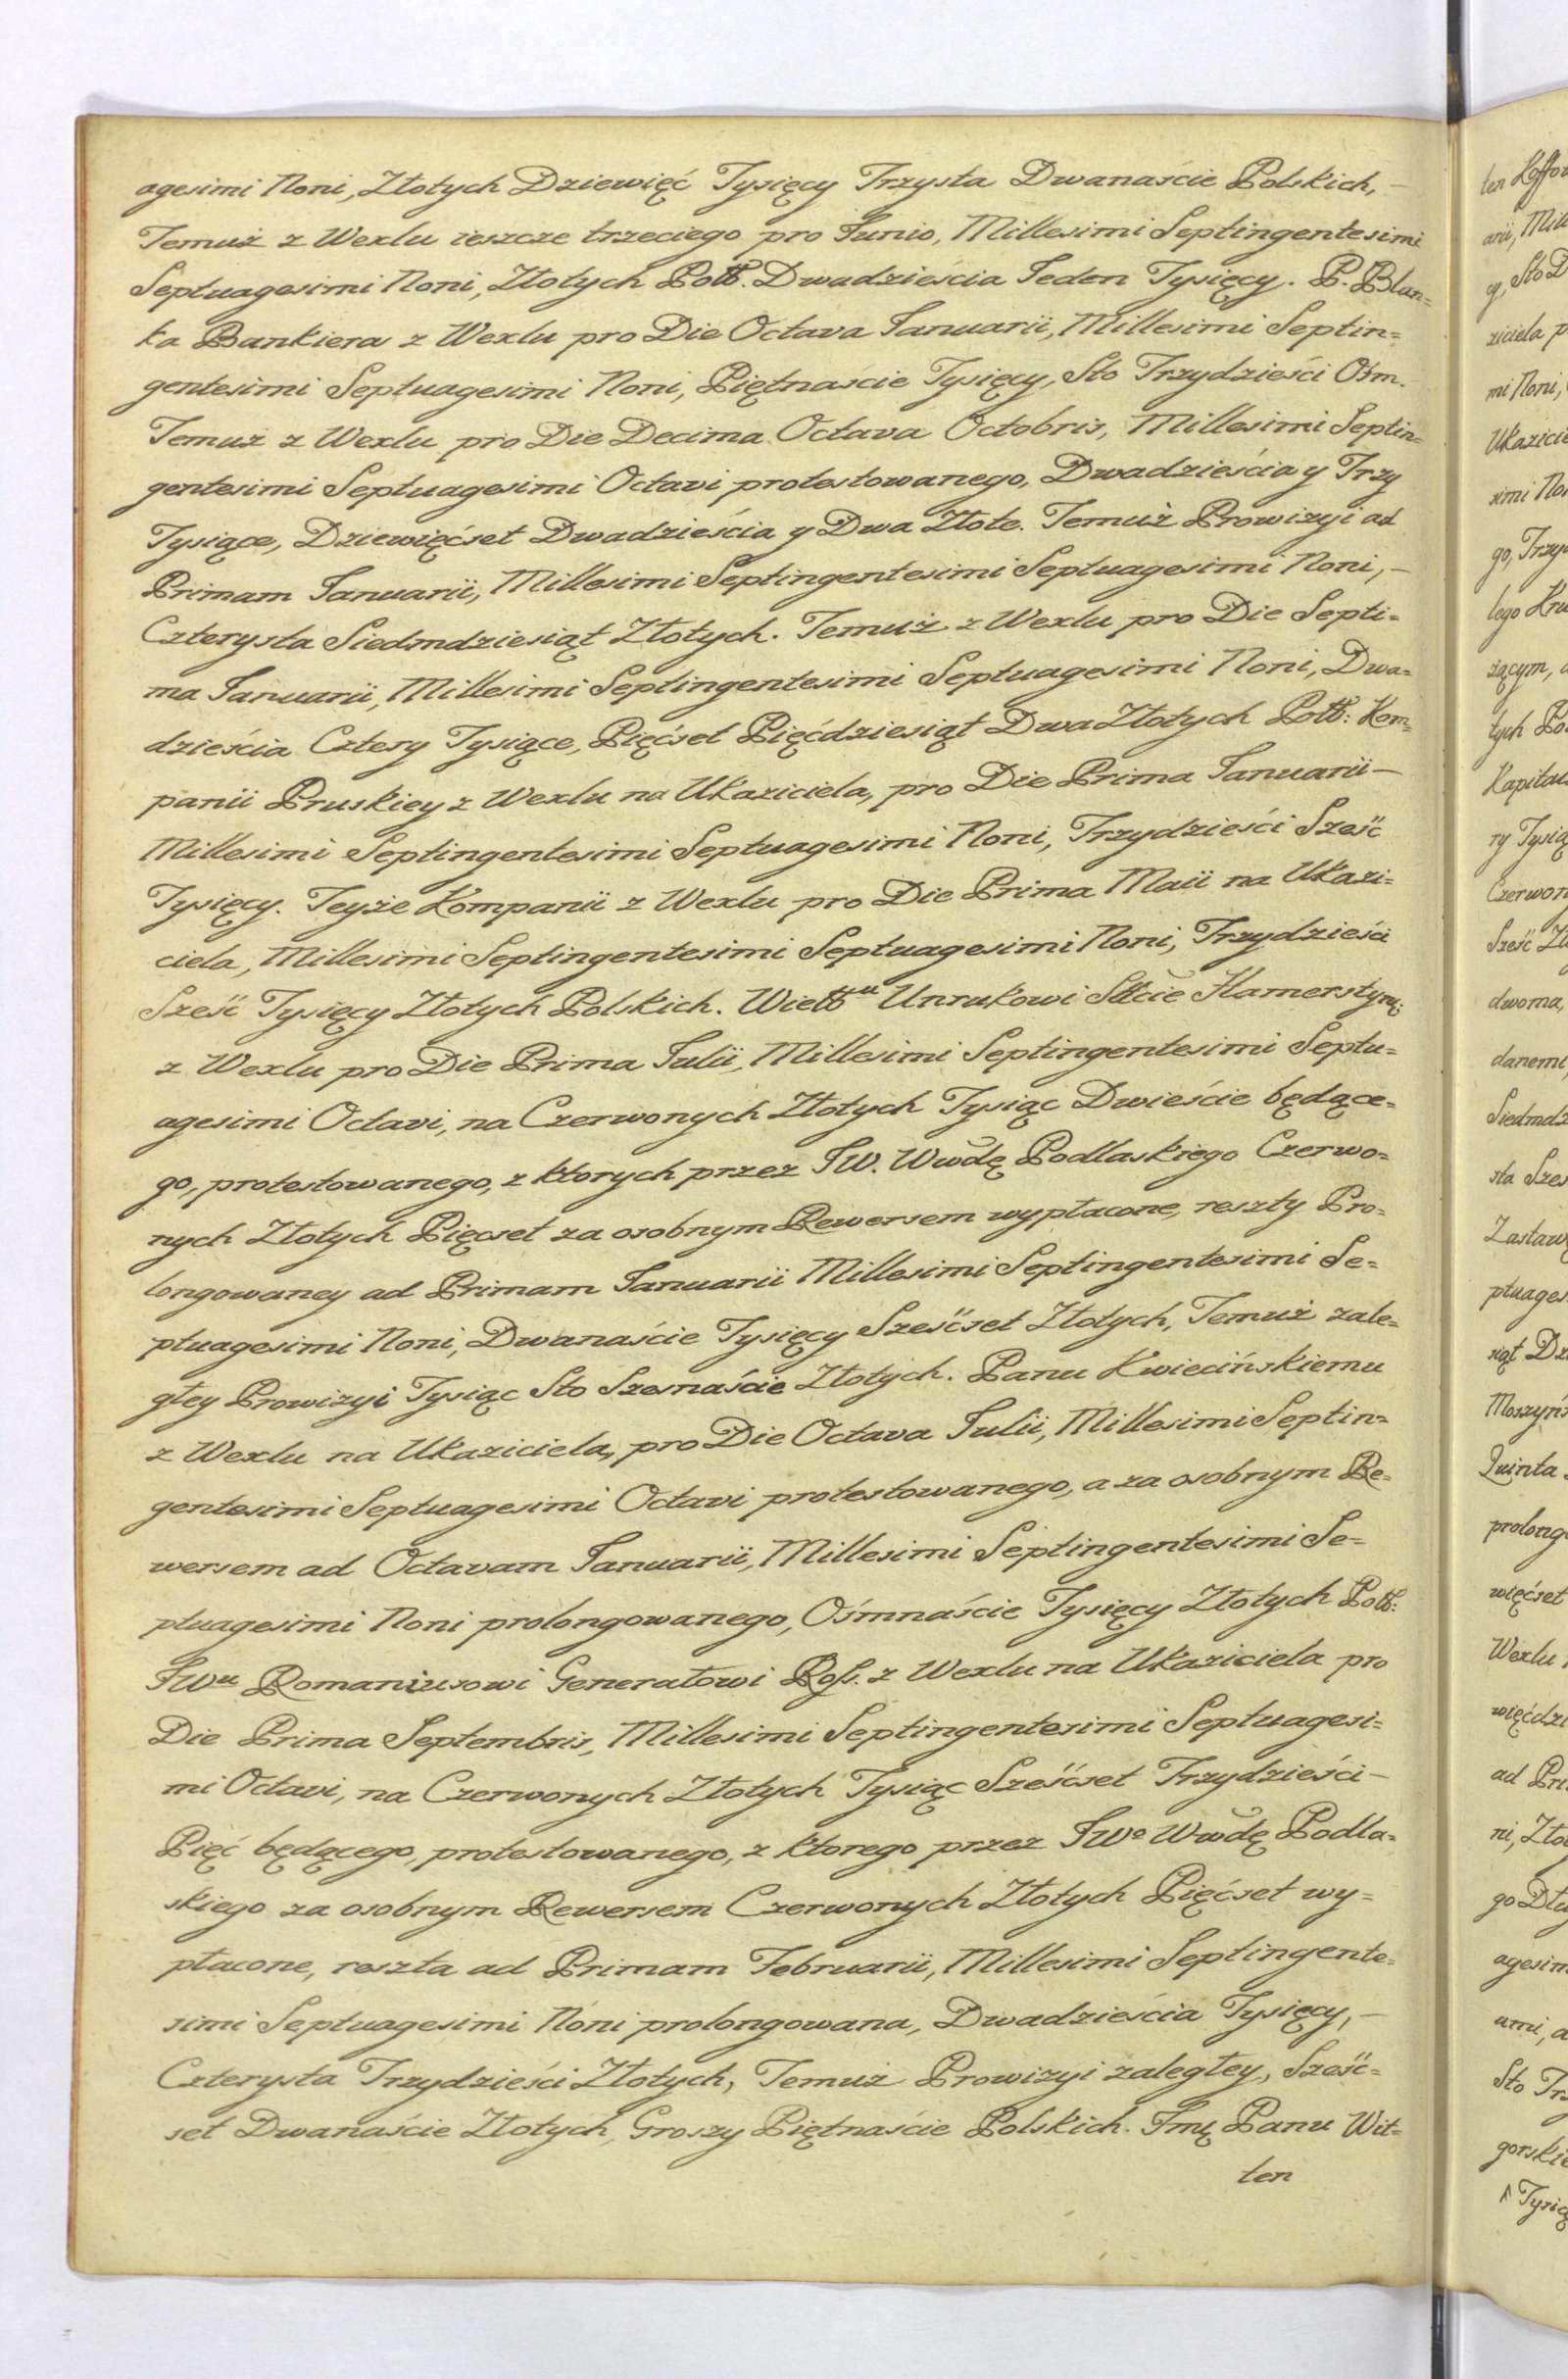 agesimi Noni, Złotych Dziewięć Tysięcy Trzysta Dwanaście Polskich, –
Temuż z Wexlu ieszcze trzeciego pro Junio, Millesimi Septingentesimi
Septuagesimi Noni, Złotych Poll. Dwadzieścia Jeden Tysięcy. P. Blan=
ka Bankiera z Wexlu pro Die Octava Januarii, Millesimi Septin=
gentesimi Septuagesimi Noni, Piętnaście Tysięcy, Sto Trzydzieści Ośm.
Temuż z Wexlu pro Die Decima Octava Octobris, Millesimi Septin=
gentesimi Septuagesimi Octavi protestowanego, Dwadzieścia y Trzy
Tysiące, Dziewięćset Dwadzieścia y Dwa Złote. Temuż Prowizyi ad
Primam Januarii, Millesimi Septingentesimi Septuagesimi Noni, –
Czterysta Siedmdziesiąt Złotych. Temuż z Wexlu pro Die Septi=
ma Januarii, Millesimi Septingentesimi Septuagesimi Noni, Dwa=
dzieścia Cztery Tysiące, Pięćset Pięćdziesiąt Dwa Złotych Poll: Kom=
panii Pruskiey z Wexlu na Ukaziciela, pro Die Prima Januarii –
Millesimi Septingentesimi Septuagesimi Noni, Trzydzieści Sześć
Tysięcy. Teyże Kompanii z Wexlu pro Die Prima Maii na Ukazi=
ciela, Millesimi Septingentesimi Septuagesimi Noni, Trzydzieści
Sześć Tysięcy Złotych Polskich. Unrukowi Hamersztyn:
z Wexlu pro Die Prima Julii, Millesimi Septingentesimi Septu=
agesimi Octavi, na Czerwonych Złotych Tysiąc Dwieście będące=
go, protestowanego, z ktorych przez JW. Wwdę Podlaskiego Czerwo=
nych Złotych Pięcset za osobnym Rewersem wypłacone, reszty Pro=
longowaney ad Primam Januarii Millesimi Septingentesimi Se=
ptuagesimi Noni, Dwanaście Tysięcy Sześćset Złotych, Temuż zale=
głey Prowizyi Tysiąc Sto Szesnaście Złotych. Panu Kwiecińskiemu
z Wexlu na Ukaziciela, pro Die Octava Julii, Millesimi Septin=
gentesimi Septuagesimi Octavi protestowanego, a za osobnym Re=
wersem ad Octavam Januarii, Millesimi Septingentesimi Se=
ptuagesimi Noni prolongowanego, Ośmnaście Tysięcy Złotych Poll:
JWu Romaniusowi Generałowi Ross. z Wexlu na Ukaziciela pro
Die Prima Septembris, Millesimi Septingentesimi Septuagesi=
mi Octavi, na Czerwonych Złotych Tysiąc Sześćset Trzydzieści –
Pięć będącego, protestowanego, z ktorego przez JWo Wwdę Podla=
skiego za osobnym Rewersem Czerwonych Złotych Pięćset wy=
płacone, reszta ad Primam Februarii, Millesimi Septingente=
simi Septuagesimi Noni prolongowana, Dwadzieścia Tysięcy, –
Czterysta Trzydzieści Złotych, Temuż Prowizyi zaległey, Sześć=
set Dwanaście Złotych, Groszy Piętnaście Polskich. Jmę Panu Wit=
ten